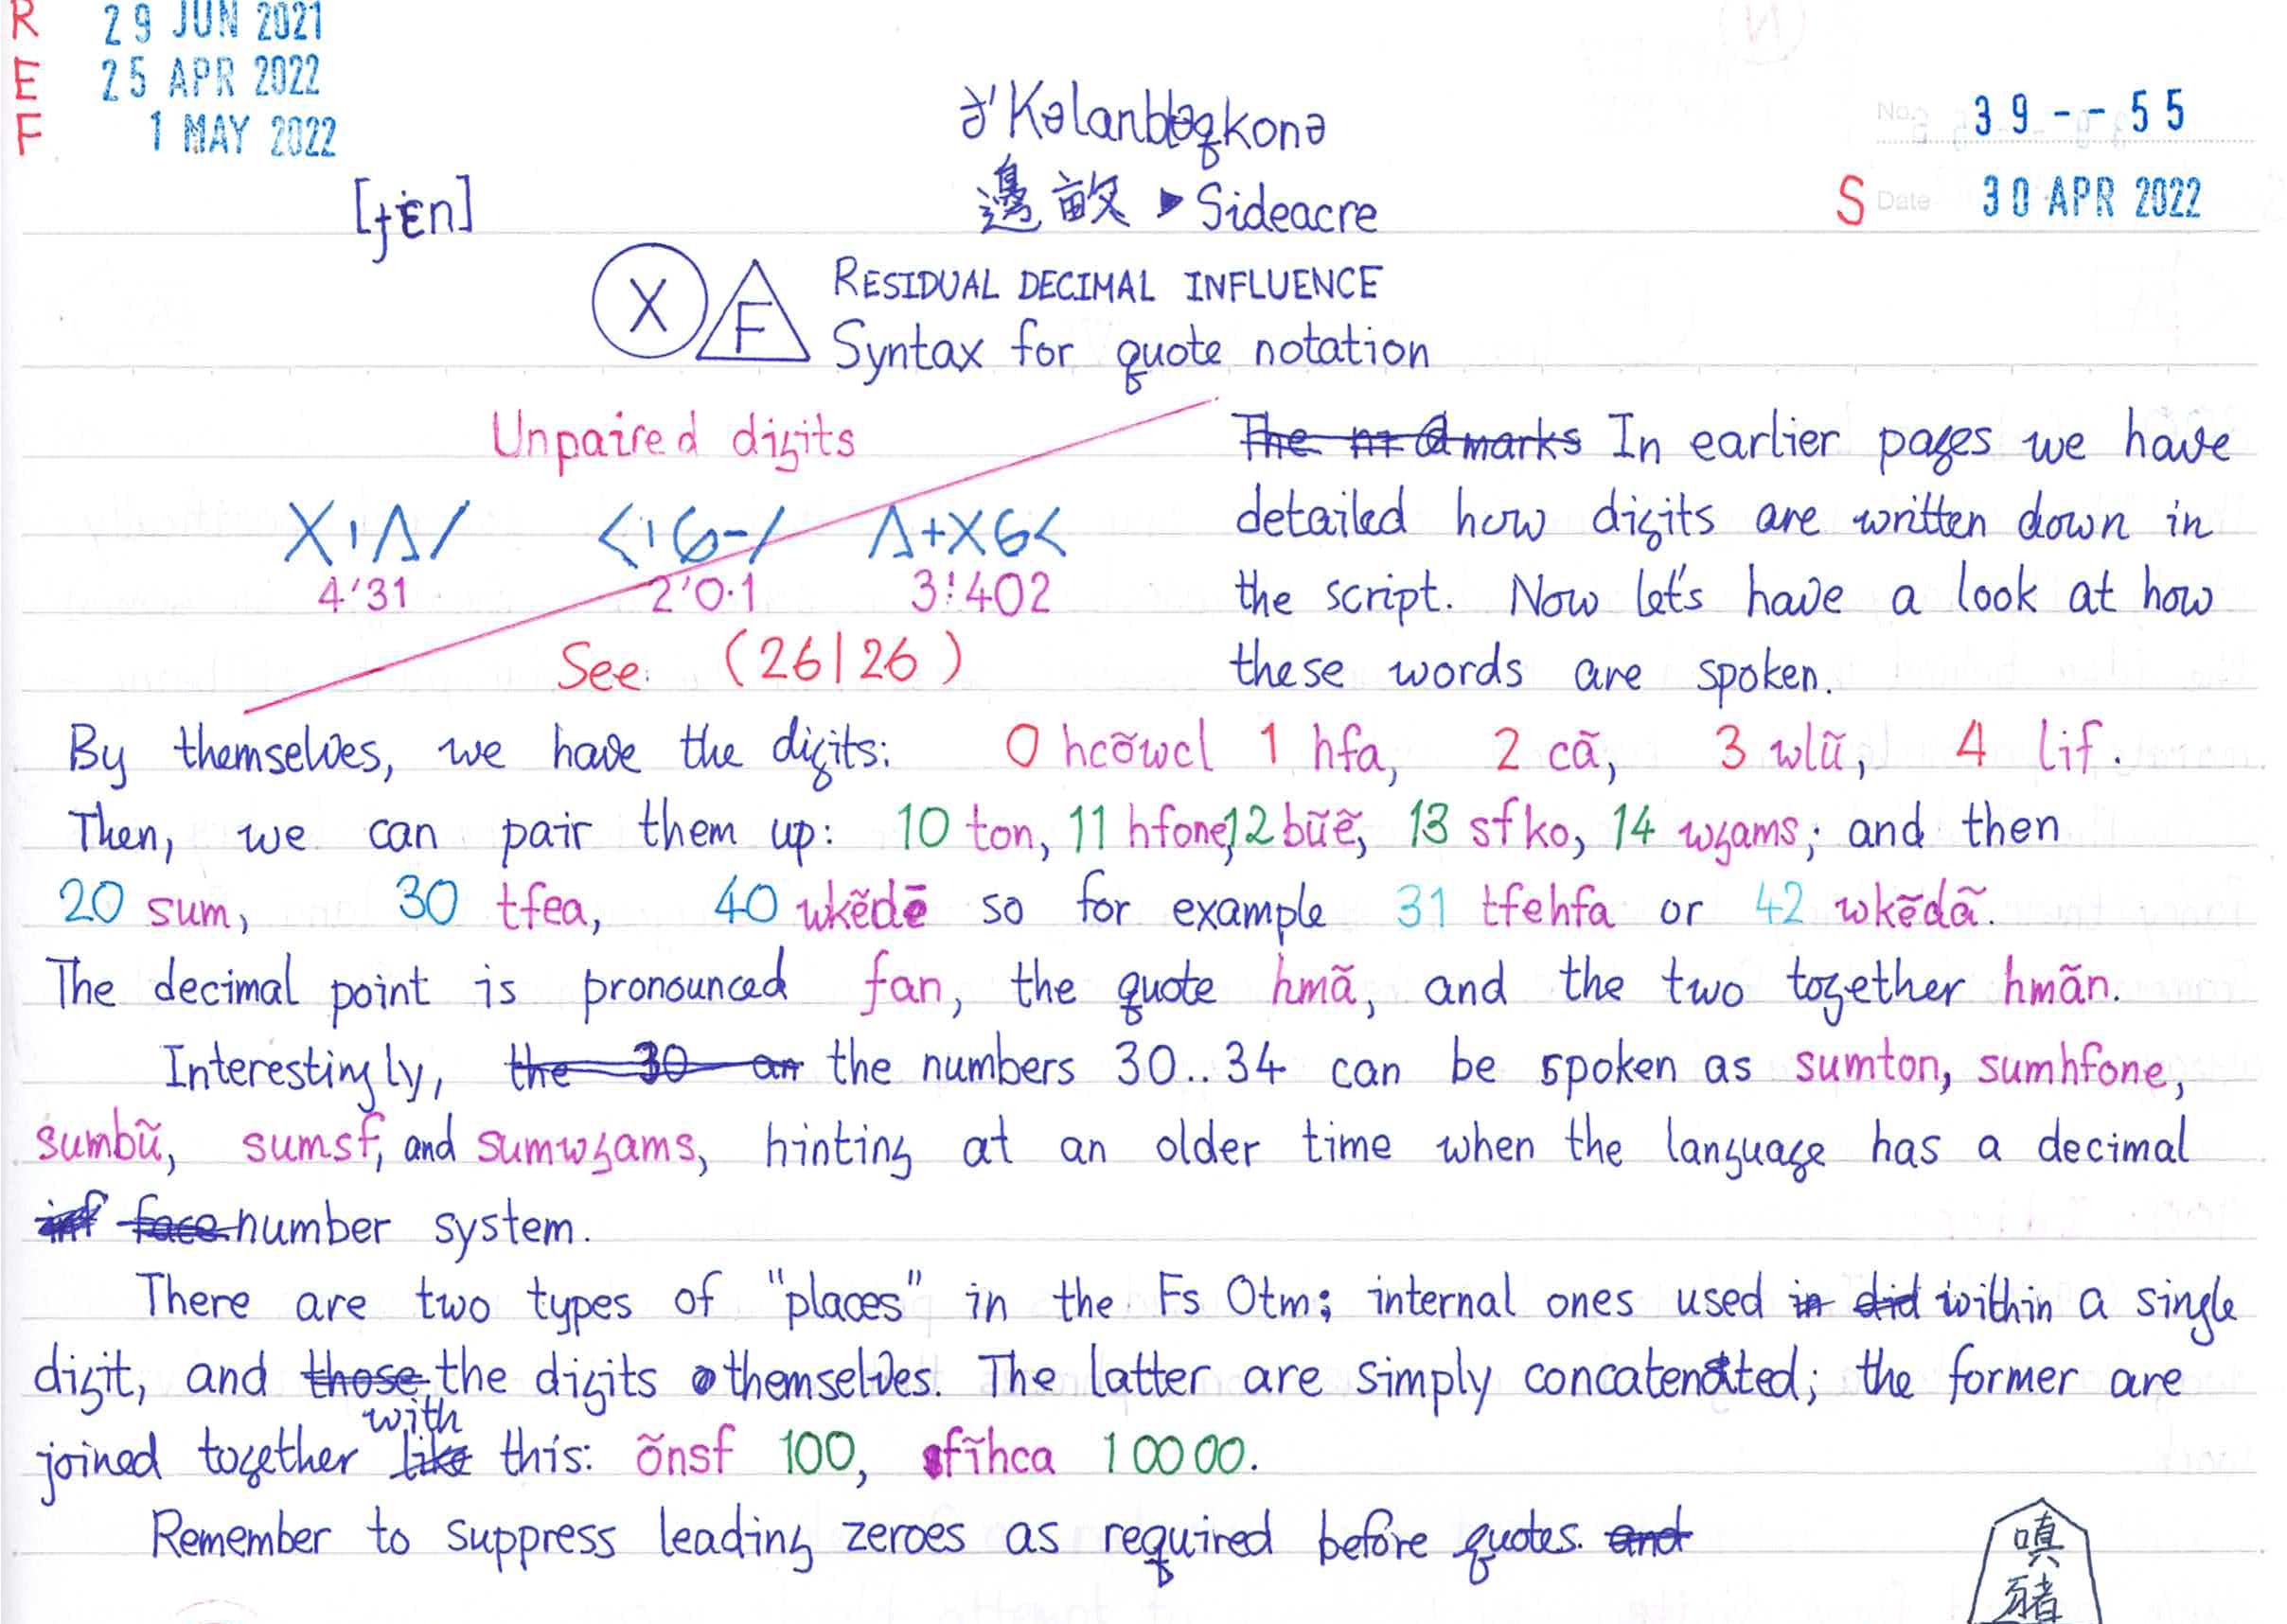 R 29 JUN 2021
E 25 APR 2022
F 1 MAY 2022
39--55
No.
S Date 30 APR 2022
[ɟɛn]
邊畝 ▸ Sideacre
X F RESIDUAL DECIMAL INFLUENCE
Syntax for quote notation
Unpaired digits
4'31 2'0·1 3!402
See (26|26)
The marks In earlier pages we have
detailed how digits are written down in
the script. Now let's have a look at how
these words are spoken.
By themselves, we have the digits: 0 hcõwcl 1 hfa, 2 cã, 3 wlũ, 4 lif.
Then, we can pair them up: 10 ton, 11 hfone, 12 bũẽ, 13 sfko, 14 wgams; and then
20 sum, 30 tfea, 40 wkẽdē so for example 31 tfehfa or 42 wkẽdã.
The decimal point is pronounced fan, the quote hmã, and the two together hmãn.
Interestingly, the 30 an the numbers 30..34 can be spoken as sumton, sumhfone,
sumbũ, sumsf, and sumwgams, hinting at an older time when the language has a decimal
inf face number system.
There are two types of "places" in the Fs Otm; internal ones used in did within a single
digit, and those the digits themselves. The latter are simply concatenated; the former are
joined together like with this: õnsf 100, fĩhca 10000.
Remember to suppress leading zeroes as required before quotes. and
嗔
豬